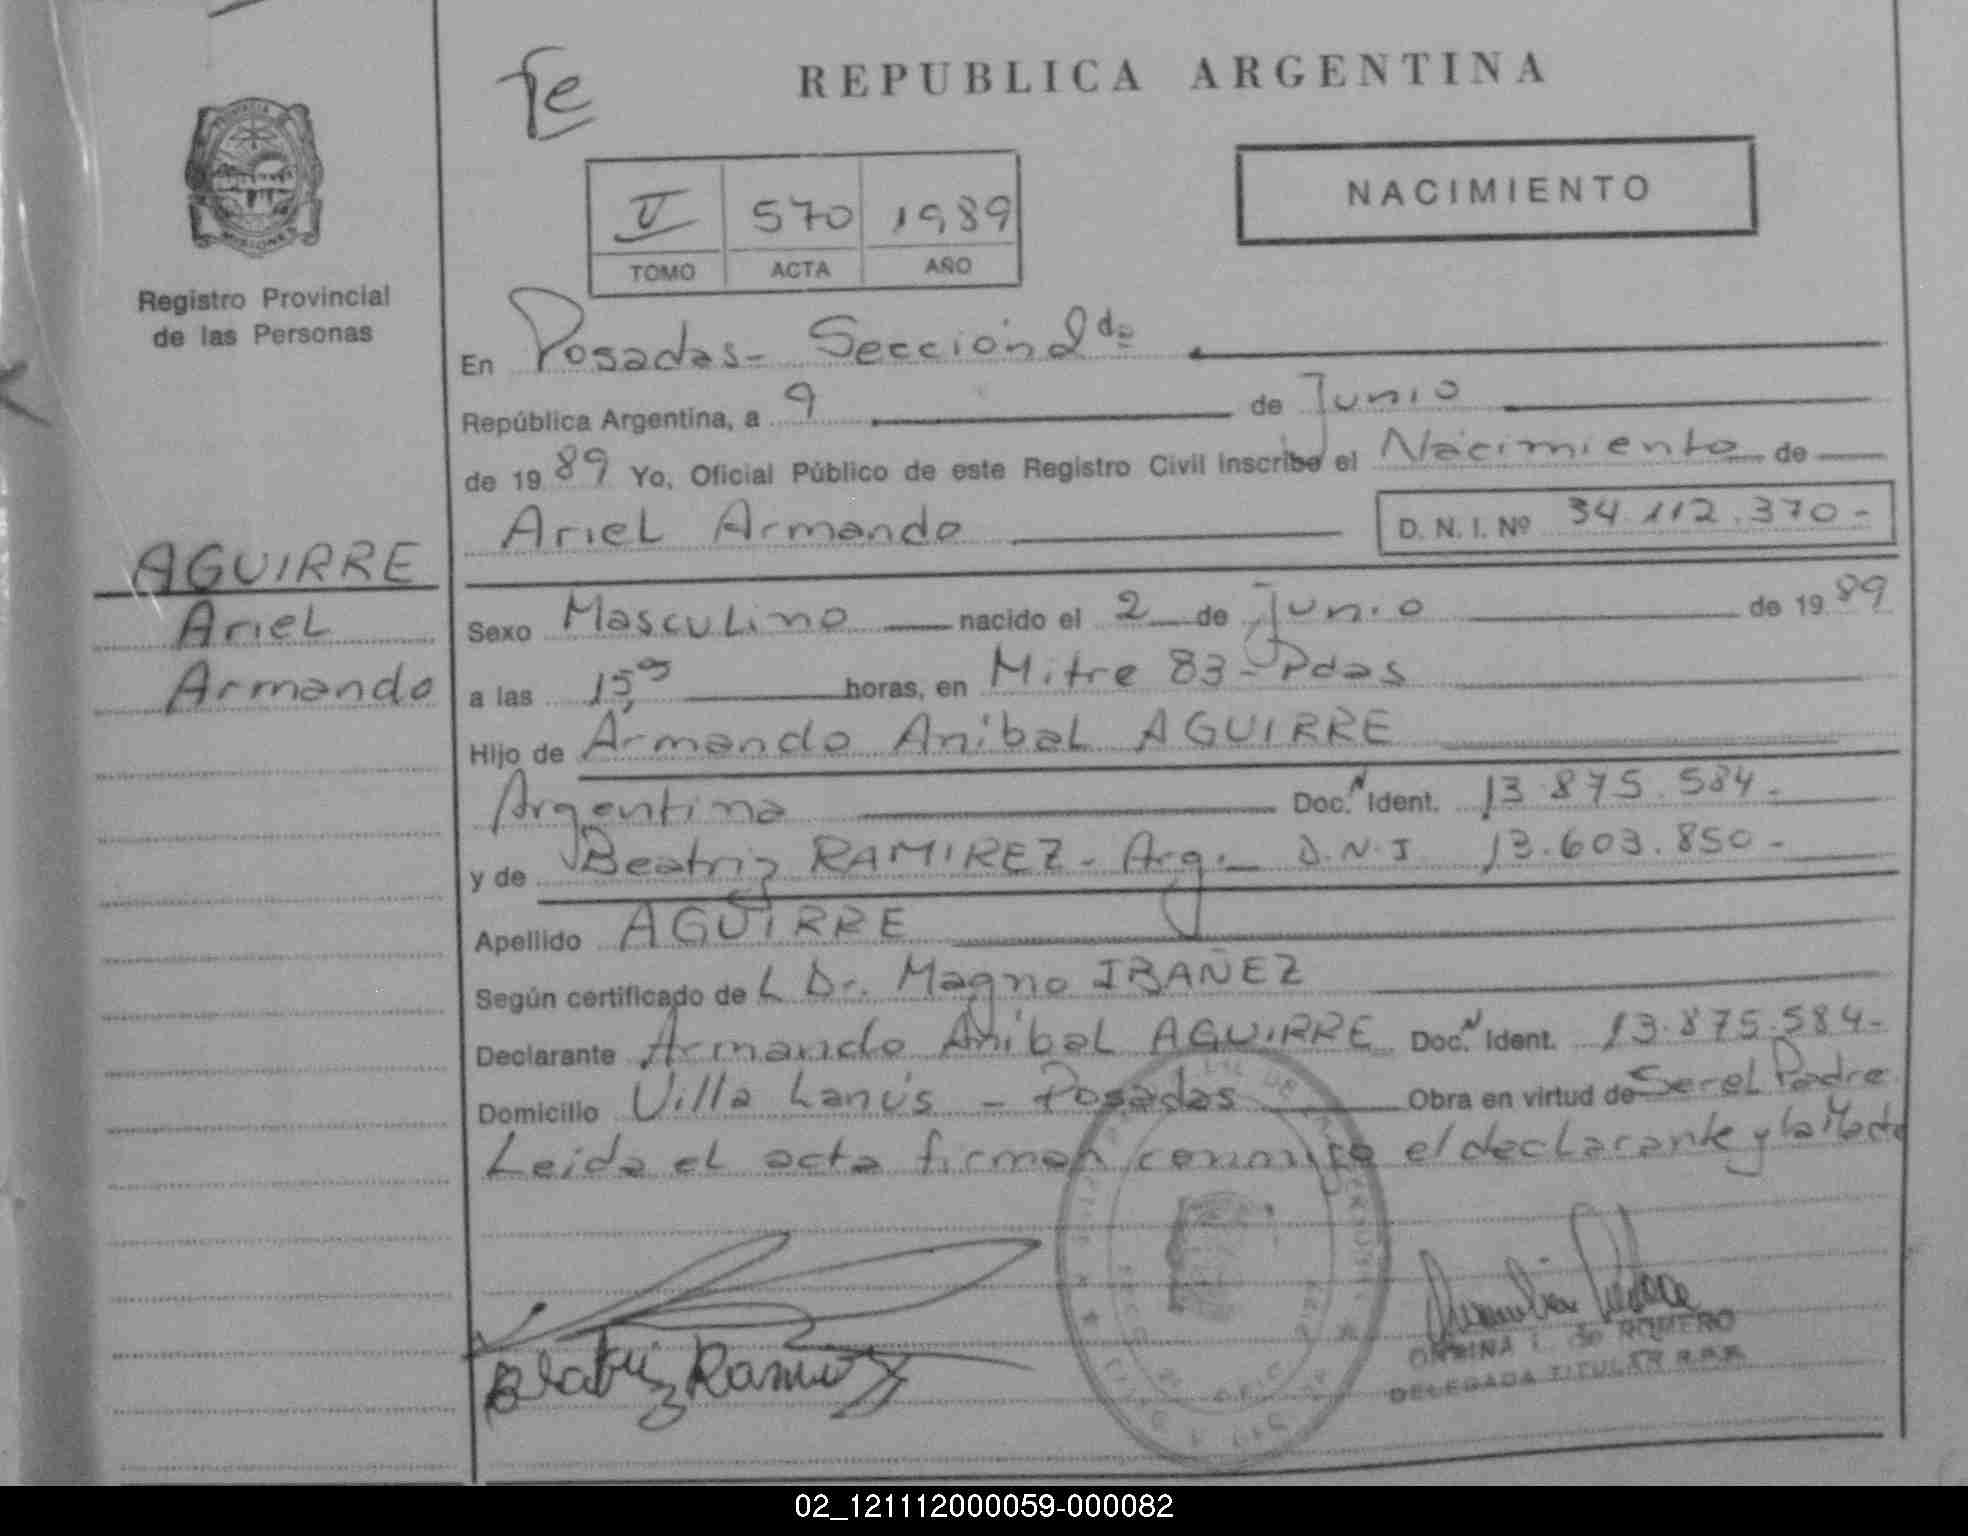 Fe
REPUBLICA ARGENTINA
NACIMIENTO
V 570 1989
TOMO ACTA AÑO
MISIONES
Registro Provincial
de las Personas
En Posadas - Sección 2da
República Argentina, a 9 de Junio
de 19 89 Yo, Oficial Público de este Registro Civil inscribo el Nacimiento de
Ariel Armando D. N. I. Nº 34.112.370-
AGUIRRE
Ariel
Armando
Sexo Masculino nacido el 2 de Junio de 19 89
a las 15, horas, en Mitre 83 - Pdas
Hijo de Armando Anibal AGUIRRE
Argentina Doc. Ident. 13.875.584-
y de Beatriz RAMIREZ - Arg. - D.N.I 13.603.850-
Apellido AGUIRRE
Según certificado de L Dr. Magno IBAÑEZ
Declarante Armando Anibal AGUIRRE Doc. Ident. 13.875.584-
Domicilio Villa Lanús - Posadas Obra en virtud de Ser el Padre
Leida el acta firman conmigo el declarante y la Madre
Beatriz Ramirez
de ROMERO
DELEGADA TITULAR R.P.P.
02_121112000059-000082